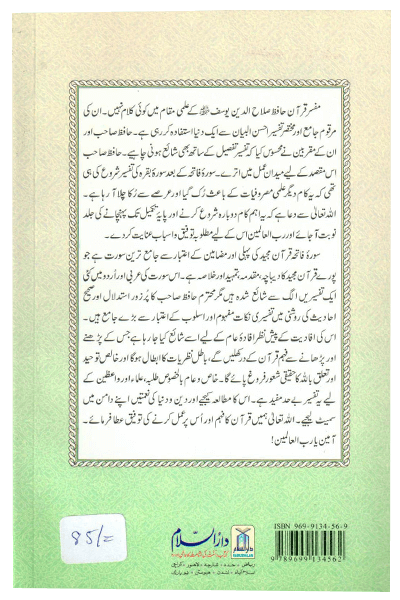 مفسر قرآن حافظ صلاح الدین یوسف ﷾ کے علمی مقام میں کوئی کلام نہیں۔ ان کی
مرقوم جامع اور مختصر تفسیر احسن البیان سے ایک دنیا استفادہ کر رہی ہے۔ حافظ صاحب اور
ان کے مقربین نے محسوس کیا کہ تفسیر تفصیل کے ساتھ بھی شائع ہونی چاہیے۔ حافظ صاحب
اس مقصد کے لیے میدان عمل میں اترے۔ سورۂ فاتحہ کے بعد سورۂ بقرہ کی تفسیر شروع کی ہی
تھی کہ یہ کام دیگر علمی مصروفیات کے باعث رُک گیا اور عرصے سے رُکا چلا آ رہا ہے۔
اللہ تعالیٰ سے دعا ہے کہ یہ اہم کام دوبارہ شروع کرنے اور پایۂ تکمیل تک پہنچانے کی جلد
نوبت آ جائے اور رب العالمین اس کے لیے مطلوبہ توفیق و اسباب عنایت کر دے۔
سورۂ فاتحہ قرآن مجید کی پہلی اور مضامین کے اعتبار سے جامع ترین سورت ہے جو
پورے قرآن مجید کا دیباچہ، مقدمہ، تمہید اور خلاصہ ہے۔ اس سورت کی عربی اور اُردو میں کئی
ایک تفسیریں الگ سے شائع شدہ ہیں مگر محترم حافظ صاحب کا پُرزور استدلال اور صحیح
احادیث کی روشنی میں تفسیری نکات مفہوم اور اسلوب کے اعتبار سے بڑے جامع ہیں۔
اس کی افادیت کے پیش نظر افادۂ عام کے لیے اسے شائع کیا جا رہا ہے جس کے پڑھنے
اور پڑھانے سے فہم قرآن کے در کھلیں گے، باطل نظریات کا ابطال ہوگا اور خالص توحید
اور تعلق باللہ کا حقیقی شعور فروغ پائے گا۔ خاص و عام بالخصوص طلبہ، علماء اور واعظین کے
لیے یہ تفسیر بے حد مفید ہے۔ اس کا مطالعہ کیجیے اور دین و دنیا کی نعمتیں اپنے دامن میں
سمیٹ لیجیے۔ اللہ تعالیٰ ہمیں قرآن کا فہم اور اُس پر عمل کرنے کی توفیق عطا فرمائے۔
آمین یا رب العالمین!
ISBN 969-9134-56-9
دارالسلام
9 789699 134562
85/=